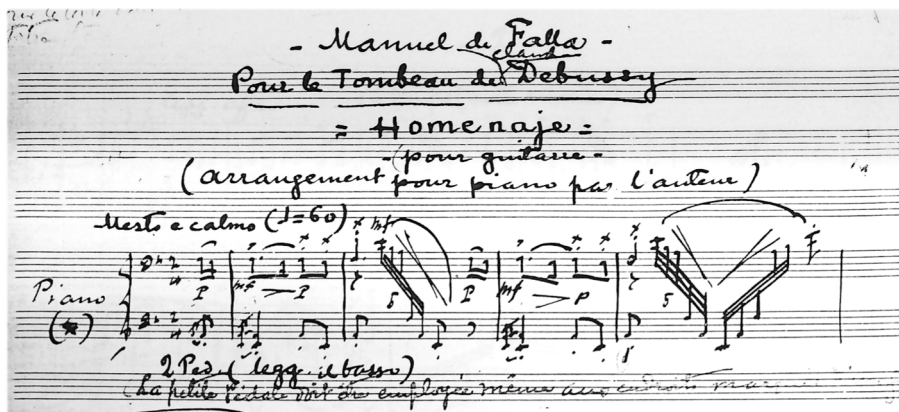 - Manuel de Falla -
Pour le Tombeau de Claude Debussy
= Homenaje =
- (pour guitarre -
(arrangement pour piano par l'auteur)
Mesto e calmo (♩=60) mf
Piano
(★)
2 4 P mf > P 5 P mf > P 5
2 4
2 Ped. (legg. il basso)
(La petite Pédale doit être employée même aux endroits